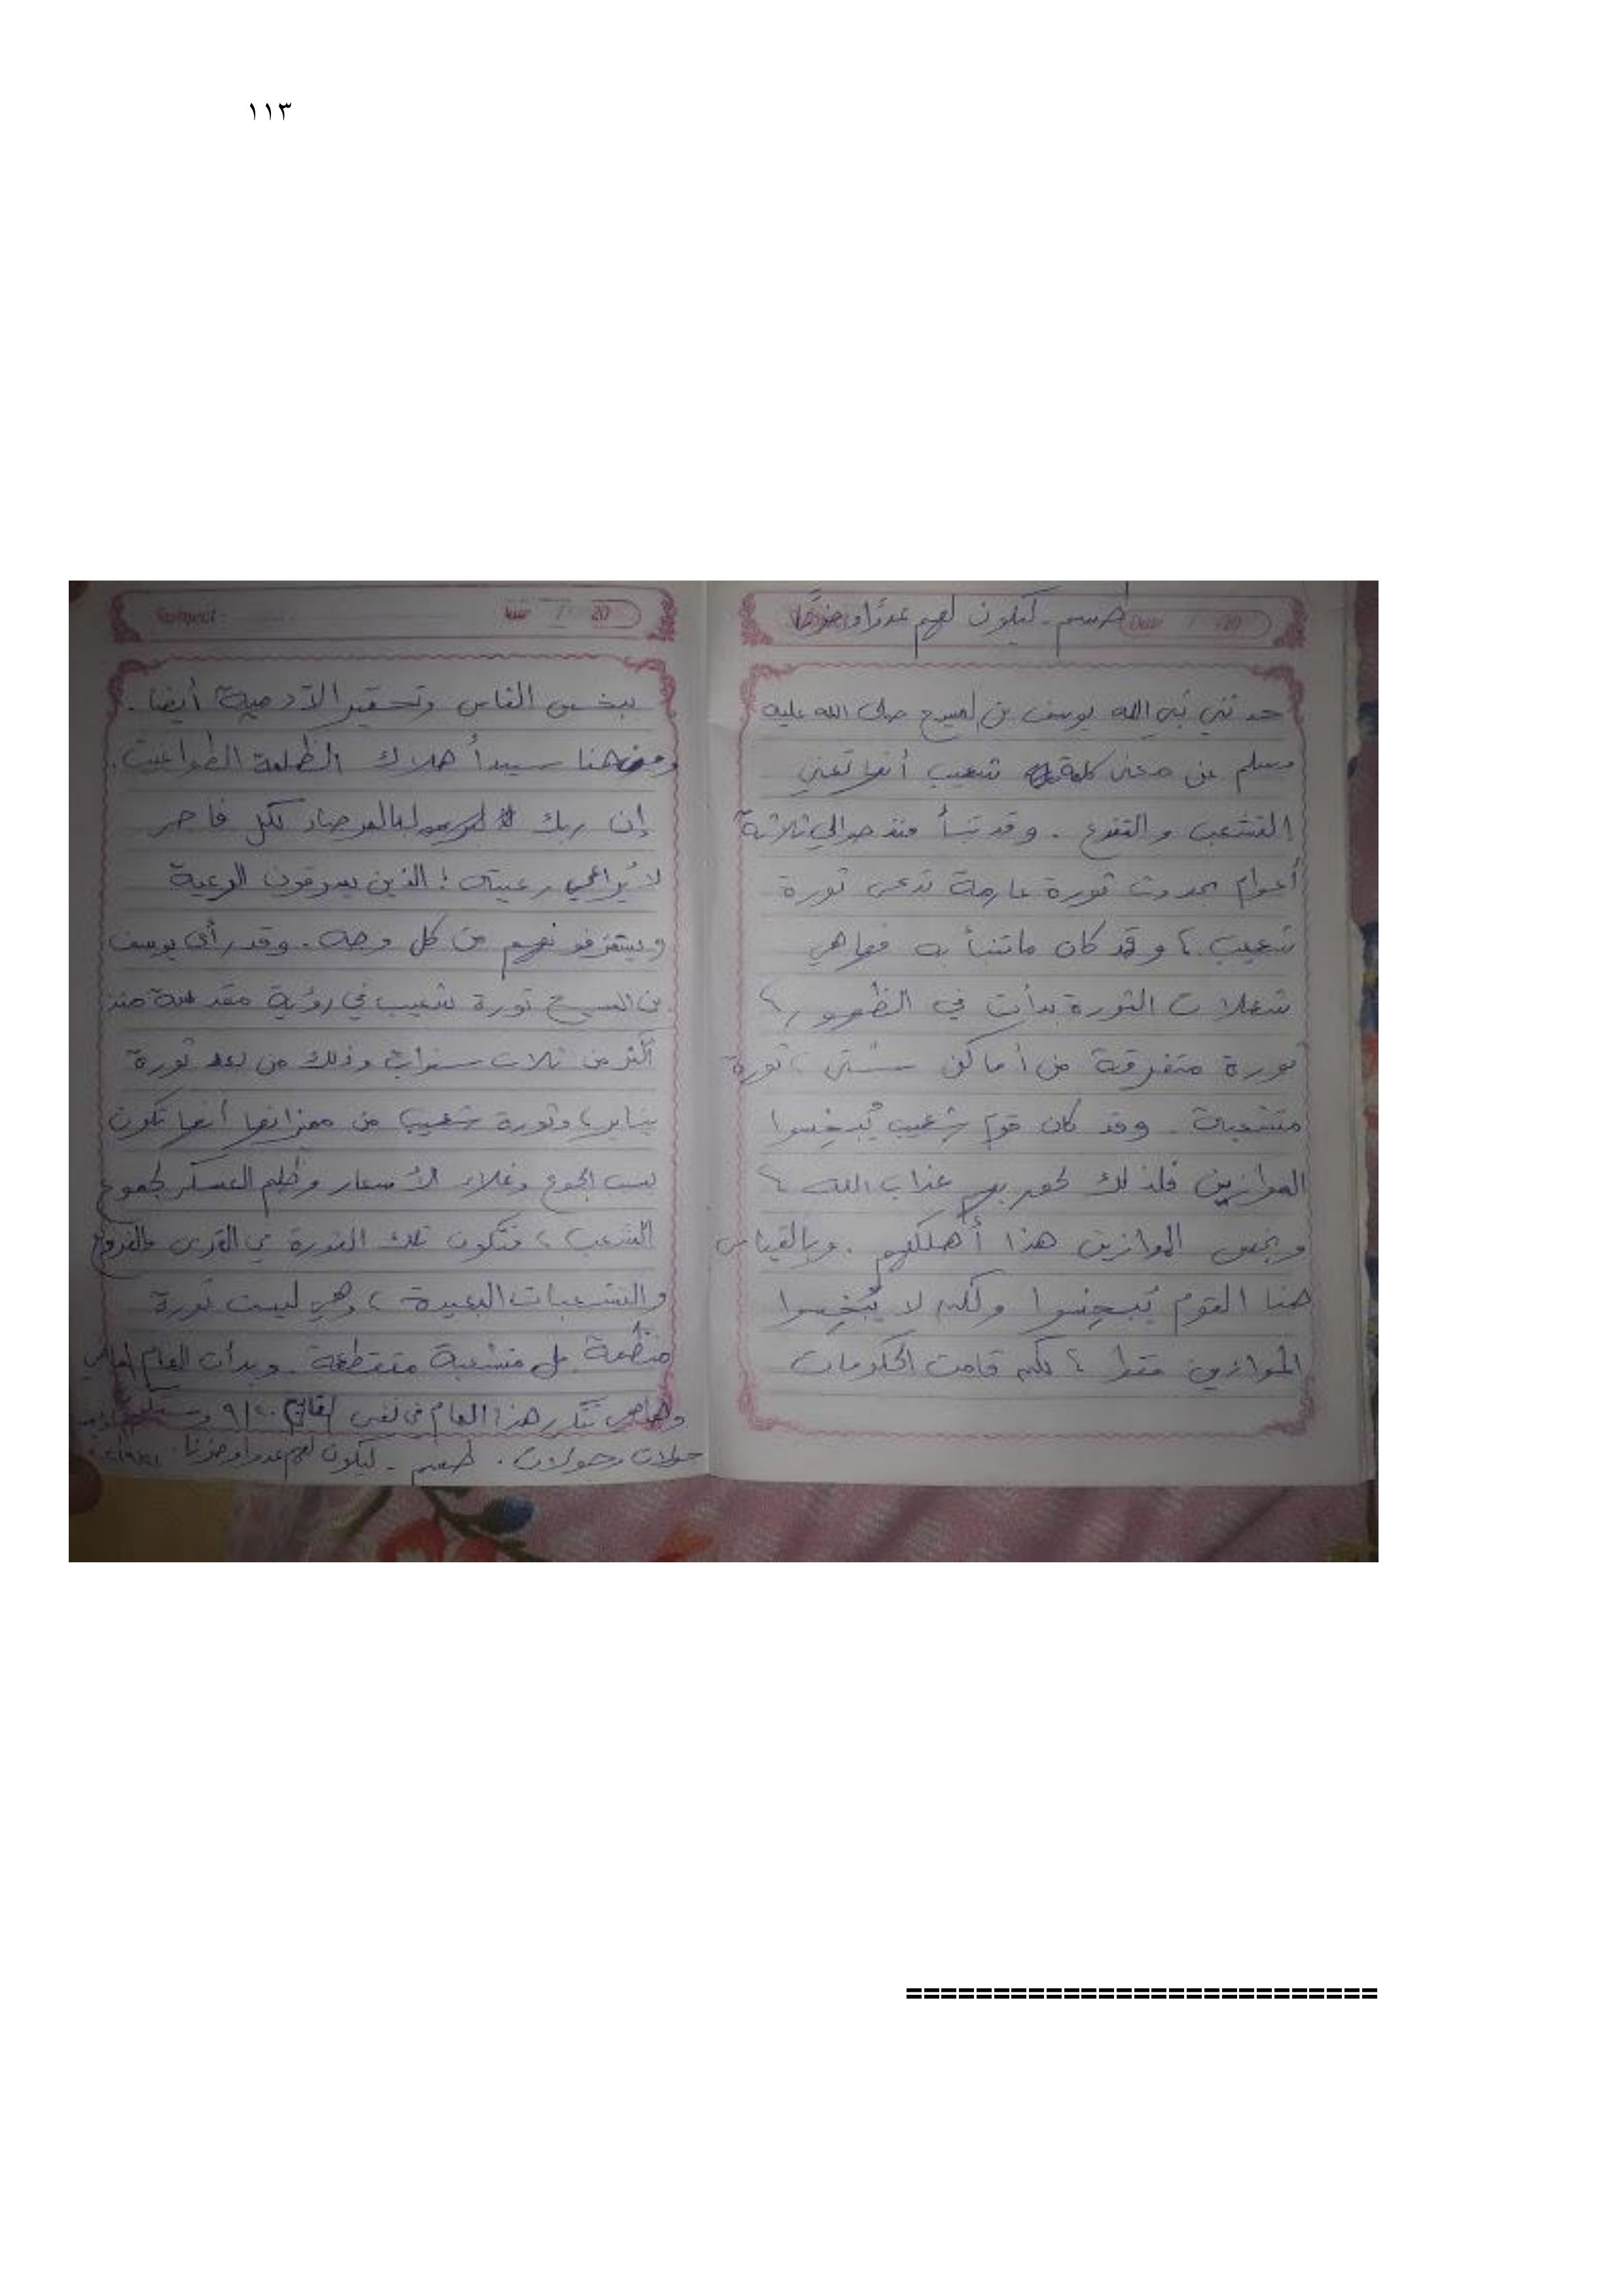 ١١٣
طسم - ليكون لهم عدوًا وحزنًا
حدثني نبي الله يوسف بن المسيح صلى الله عليه
وسلم عن معنى كلمة شعيب أنها تعني
التشعب والتفرع . وقد تنبأ منذ حوالي ثلاثة
أعوام بحدوث ثورة عارمة تدعى ثورة
شعيب ، وقد كان ما تنبأ به فها هي
شعلات الثورة بدأت في الظهور ،
ثورة متفرقة من أماكن شتى ، ثورة
متشعبة . وقد كان قوم شعيب يُبخِسوا
الموازين فلذلك لحق بهم عذاب الله ،
وبخس الموازين هذا أهلكهم . وبالقياس
هنا القوم يُبخِسوا ولكن لا يُبخِسوا
الموازين فقط ، لكن قامت الحكومات
ببخس الناس وتحقير الآدمية أيضا .
ومن هنا سيبدأ هلاك الظلمة الطواغيت .
إن ربك لبالمرصاد لكل فاجر
لا يُراعي رعيته ؛ الذين يسرقون الرعية
ويستنزفونهم من كل وجه . وقد رأى يوسف
بن المسيح ثورة شعيب في رؤية مقدسة منذ
أكثر من ثلاث سنوات وذلك من بعد ثورة
يناير ، وثورة شعيب من مميزاتها أنها تكون
بسبب الجوع وغلاء الأسعار وظلم العسكر لجموع
الشعب ، فتكون تلك الثورة في القرى والفروع
والتشعبات البعيدة ، وهي ليست ثورة
منظمة بل متشعبة متقطعة . وبدأت العام الماضي
وها هي تتكرر هذا العام في نفس ٩/٢٠
جولات وجولات . طسم - ليكون لهم عدوا وحزنا
=============================